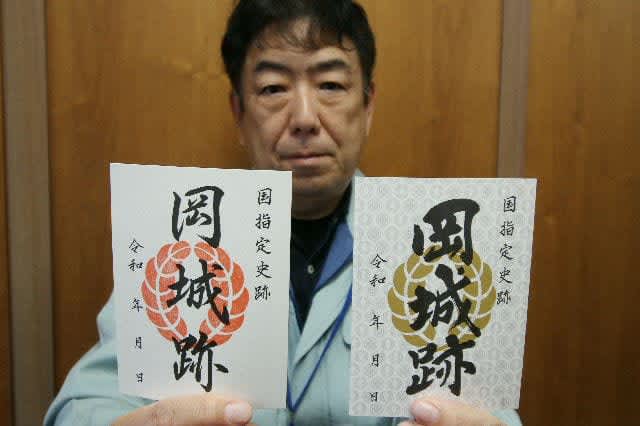 国指定史跡
岡城跡
令和 年 月 日
国指定史跡
岡城跡
令和 年 月 日